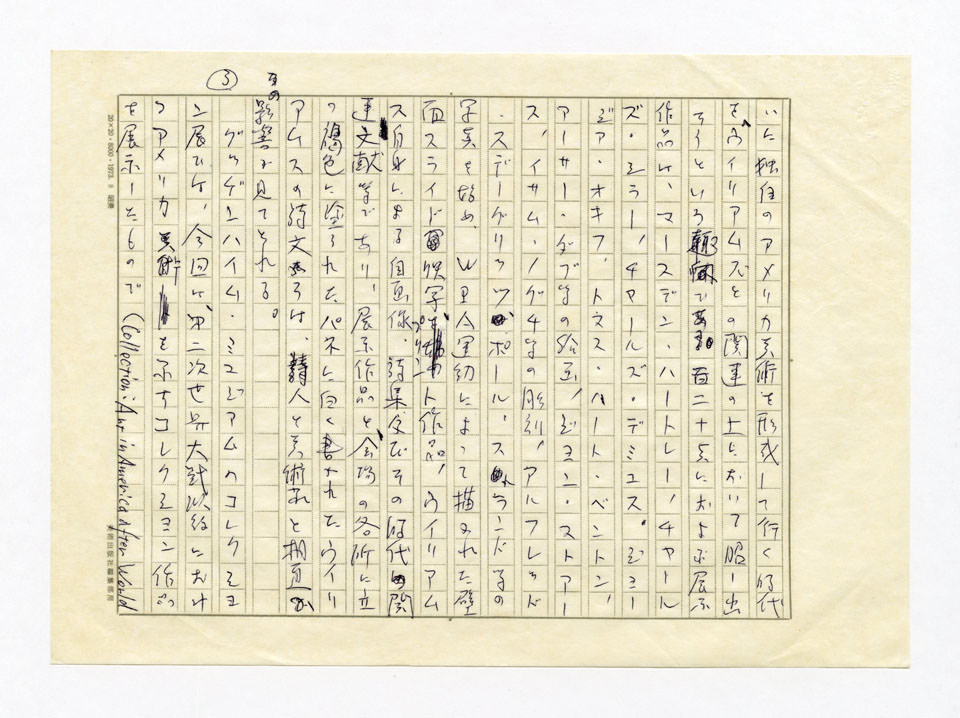 いた独自のアメリカ美術を形成して行く時代
を、ウイリアムズとの関連の上において照し出
そうという
であ 百二十点におよぶ展示
作品は、マースデン・ハートレー、チャール
ズ・シラー、チャールズ・デミュス、ジョー
ジア・オキフ、トマス・ハート・ベントン、
アーサー・ダブ等の絵画、ジョン・ストアー
ス、イサム・ノグチ等の彫刻、アルフレッド
・スティーグリッツ、ポール・ストランド等の
写真を始め、WPA運動によって描かれた壁
面スライド プリント作品、ウイリアム
ス自身による自画像、詩集及びその時代の関
連文献等であり、展示作品と会場の各所に立
つ褐色に塗られたパネルに白く書かれたウイリ
アムスの詩文からは、詩人と美術家と相互の
影響が見てとれる。
③
グッゲンハイム・ミュジアムのコレクショ
ン展ひは、今回は、第二次世界大戦以後におけ
るアメリカ美術を示すコレクション作品
を展示したもので(Collection: Art in America After World
20×20・8000・1973. 8
美術出版社編集部用